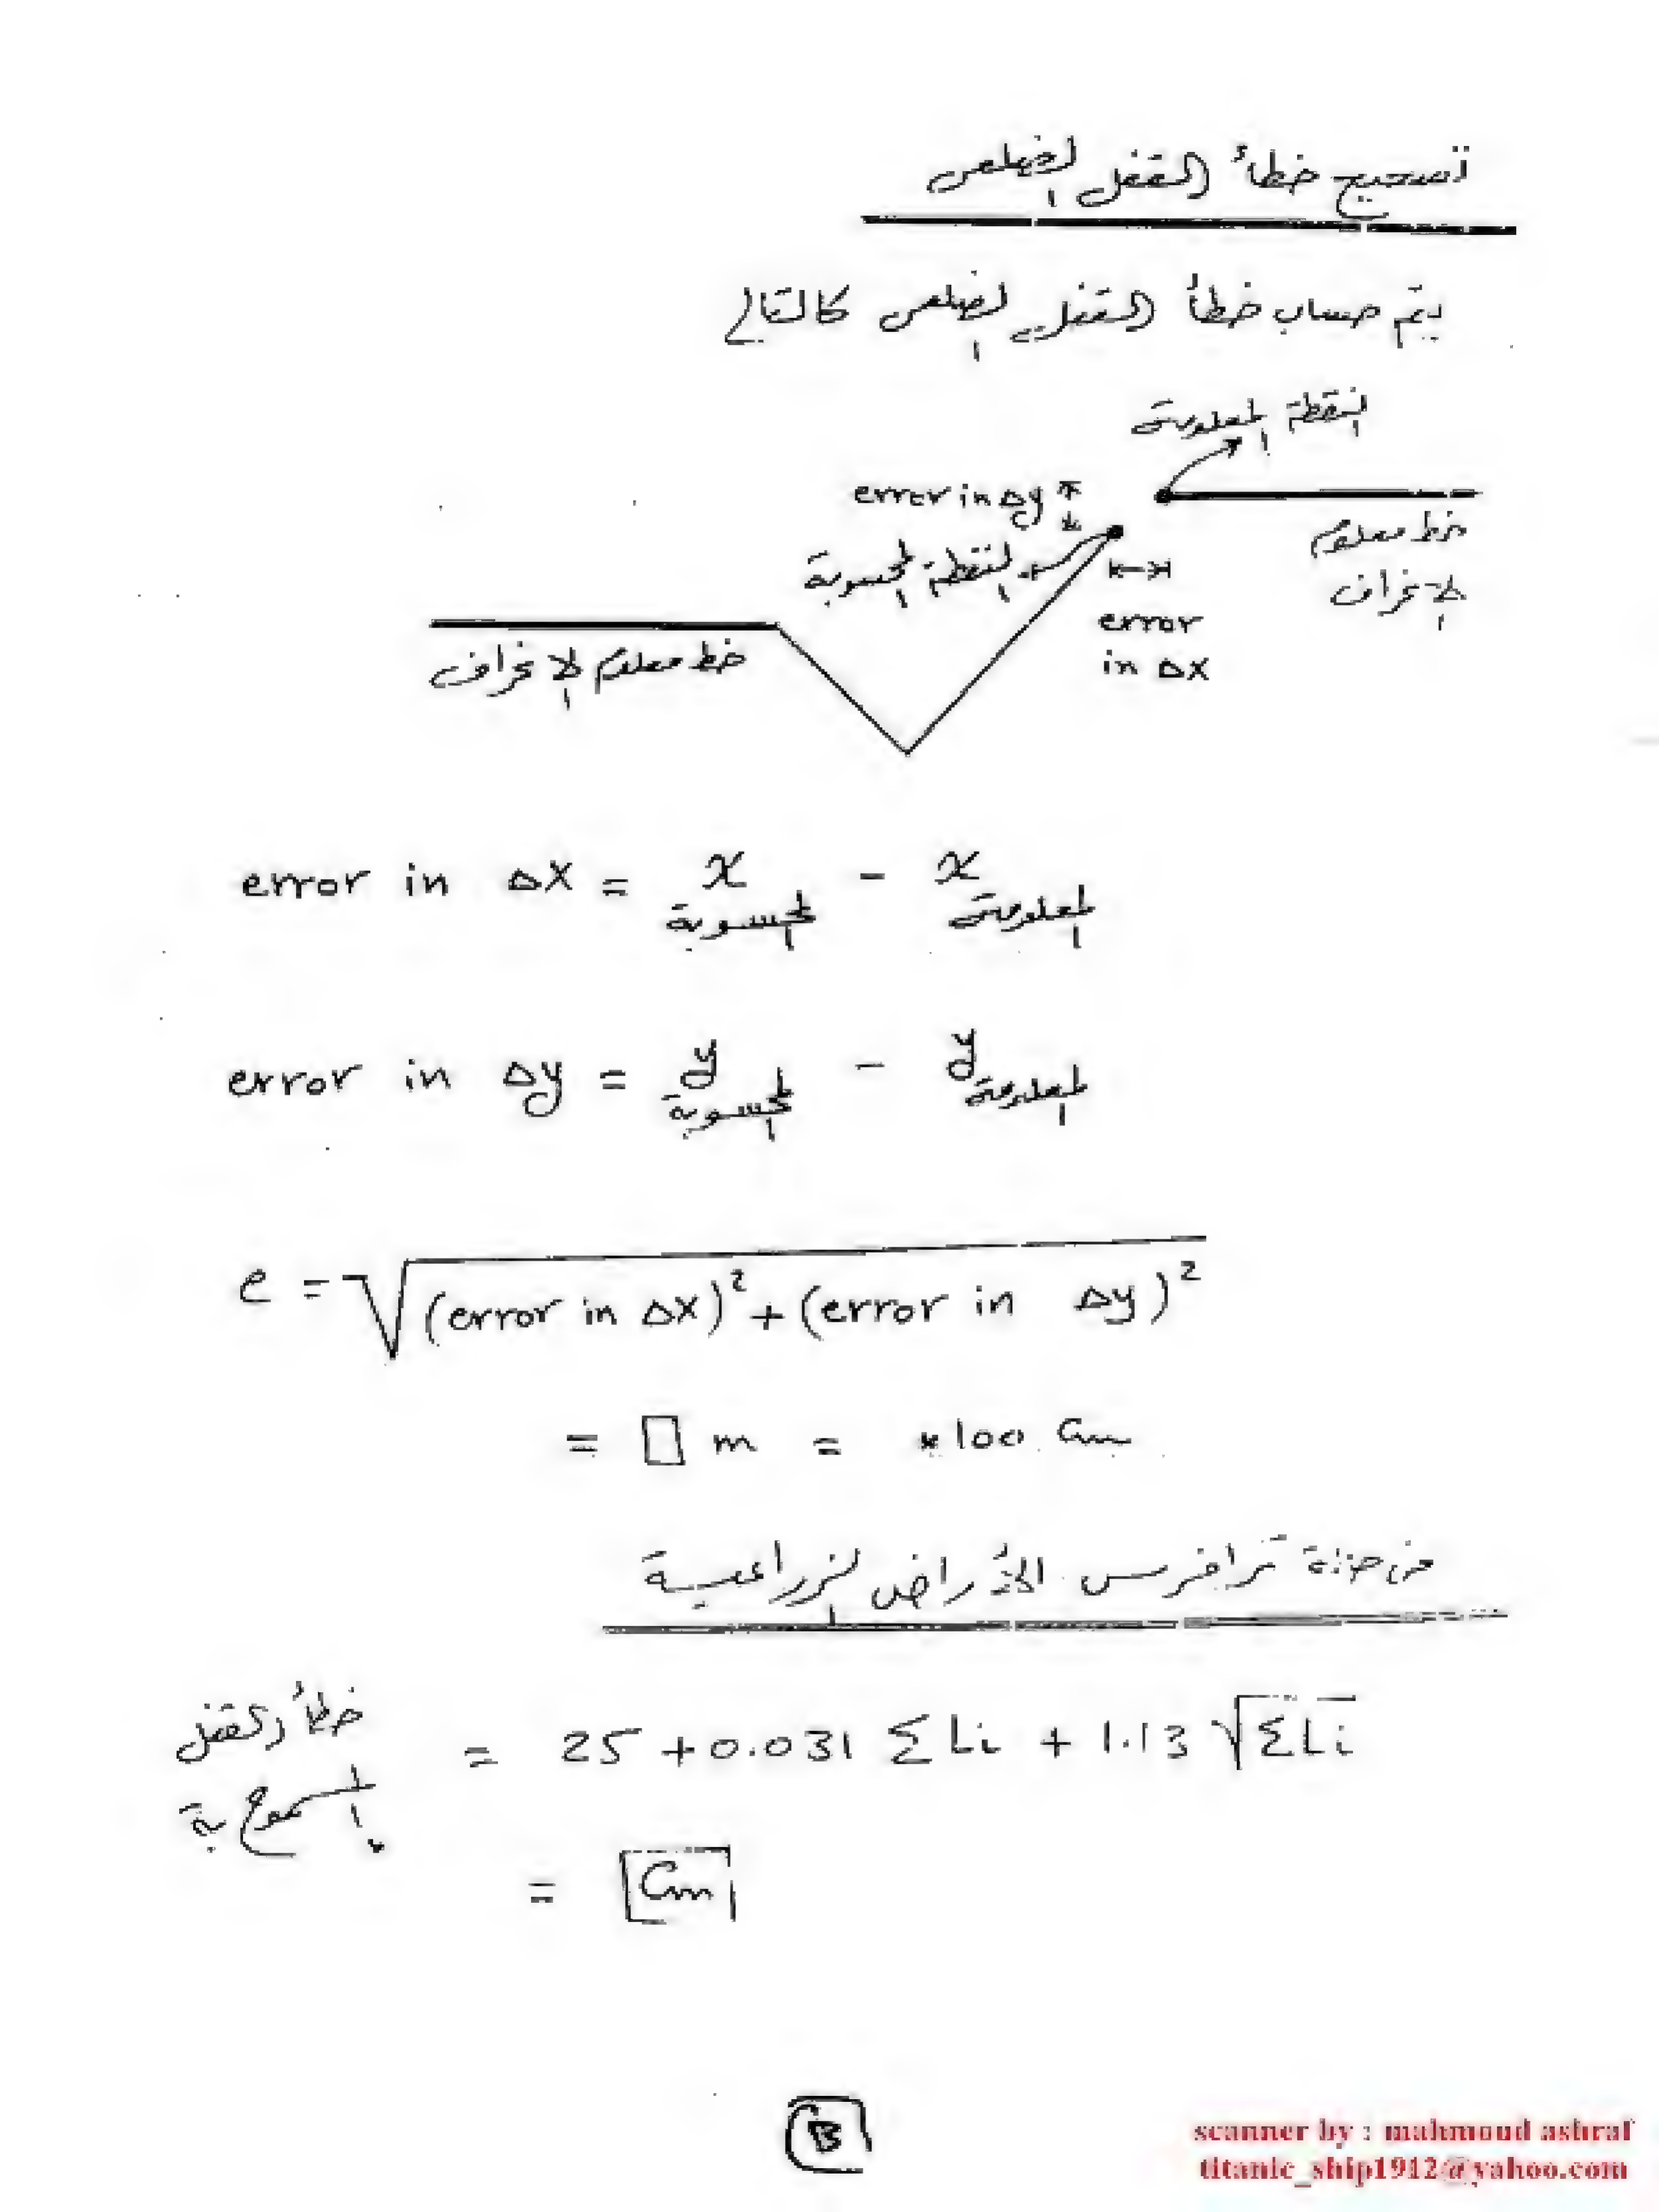 تصحيح خطأ القفل الضلعى
يتم حساب خطأ القفل الضلعى كالتالى
النقطة المعلومة
error in Δy
النقطة المحسوبة
خط معلوم
الإنحراف
error
in Δx
خط معلوم الإنحراف
error in Δx = x المحسوبة - x المعلومة
error in Δy = y المحسوبة - y المعلومة
e = √(error in Δx)² + (error in Δy)²
= □ m = *100 Cm
فى حالة ترافرس الأراضى الزراعية
خطأ القفل
المسموح به
= 25 + 0.031 ΣLi + 1.13 √ΣLi
= Cm
B
scanner by : mahmoud ashraf
titanic_ship1912@yahoo.com